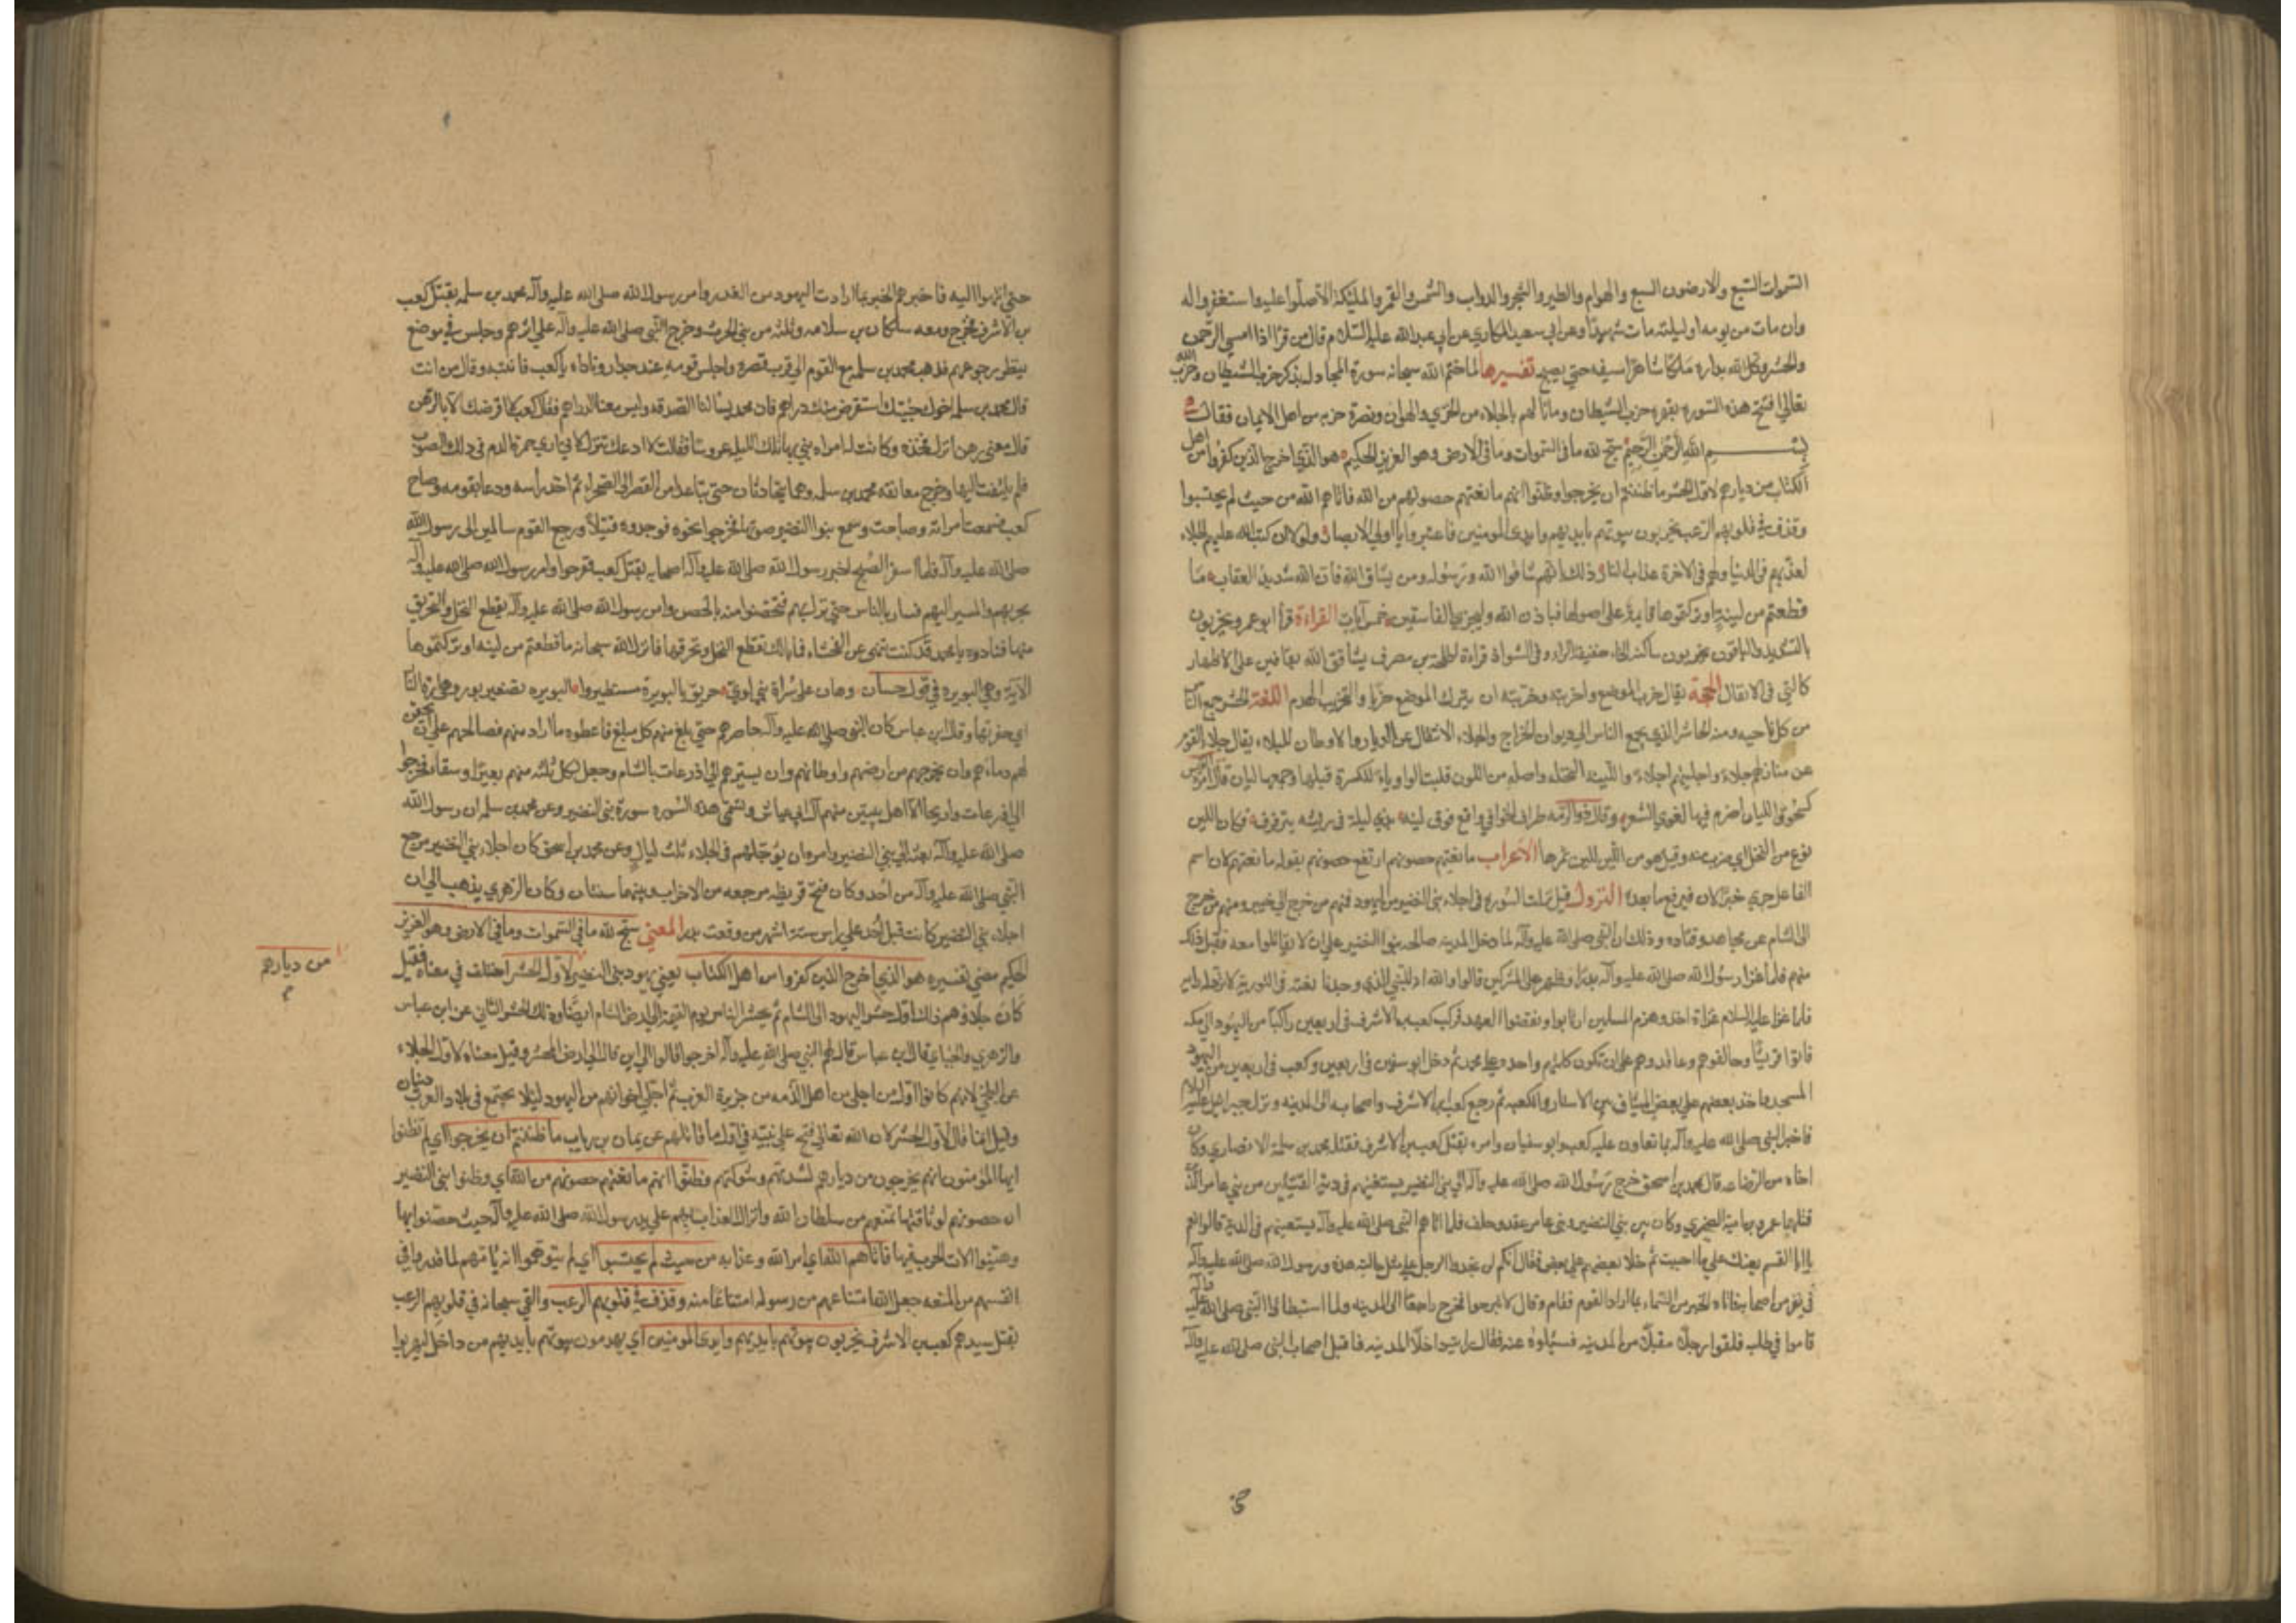 السموات السبع والارضون السبع والهوام والطير والشجر والدواب والشمس والقمر والمليكة الا صلوا عليه واستغفروا له
وان مات من يومه او ليلته مات شهيدًا وعن ابي سعيد المكاري عن ابي عبد الله عليه السلام قال من قرا اذا امسي الرحمن
والحشر وكل الله بداره ملكا شاهرا سيفه حتي يصبح تفسيرها لما ختم الله سبحانه سورة المجادله بذكر حزب الشيطان وحزب الله
تعالي افتتح هذه السوره بقهره حزب الشيطان وما نالهم بالجلاء من الخزي والهوان ونصرة حزبه من اهل الايمان فقال
بسم الله الرحمن الرحيم سبح لله ما في السموات وما في الارض وهو العزيز الحكيم هو الذي اخرج الذين كفروا من اهل
الكتاب من ديارهم لاول الحشر ما ظننتم ان يخرجوا وظنوا انهم مانعتهم حصونهم من الله فاتاهم الله من حيث لم يحتسبوا
وقذف في قلوبهم الرعب يخربون بيوتهم بايديهم وايدي المومنين فاعتبروا يا اولي الابصار ولولا ان كتب الله عليهم الجلاء
لعذبهم في الدنيا ولهم في الاخرة عذاب النار ذلك بانهم شاقوا الله ورسوله ومن يشاق الله فان الله شديد العقاب ما
قطعتم من لينة او تركتموها قايمة على اصولها فباذن الله وليجزي الفاسقين خمس ايات القراءة قرأ ابو عمرو يخربون
بالتشديد والباقون يخربون ساكنه الخاء خفيفة الراء وفي الشواذ قراءة طلحه بن مصرف يشاقق الله بقافين علي الاظهار
كالتي في الانفال الحجة يقال خرب الموضع واخربته وخربته ان يترك الموضع خرابا والتخريب الهدم اللغة الحشر جمع الناس
من كل ناحيه ومنه الحاشر الذي يجمع الناس الي ديوان الخراج والجلاء الانتقال عن الديار والاوطان للبلاء يقال جلا القوم
عن منازلهم جلاء واجليتهم اجلاء واللينه النخلة واصله من اللون قلبت الواو ياء للكسرة قبلها وجمعها ليان قال امرؤ القيس
كسحوق الليان اضرم فيها الغوي السعر وقال ذو الرمه طراق الخوافي واقع فوق لينه ندي ليلة في ريشه يترقرق فكان اللين
نوع من النخل اي ضرب منه وقيل هو من اللين للين ثمرها الاعراب مانعتهم حصونهم ارتفع حصونهم بقوله مانعتهم لان اسم
الفاعل جري خبرا لان فيرفع ما بعده النزول قيل نزلت السوره في اجلاء بني النضير من اليهود فمنهم من خرج الي خيبر ومنهم من خرج
الي الشام عن مجاهد وقتاده وذلك ان النبي صلي الله عليه وآله لما دخل المدينه صالحه بنوا النضير علي ان لا يقاتلوا معه فقبل ذلك
منهم فلما غزا رسول الله صلي الله عليه وآله بدرا وظهر علي المشركين قالوا والله انه للنبي الذي وجدنا نعته في التورية لا ترد له راية
فلما غزا عليه السلام غزاة احد وهزم المسلمين ارتابوا ونقضوا العهد فركب كعب بن الاشرف في اربعين راكبا من اليهود الي مكه
فاتوا قريشًا وحالفوهم وعاقدوهم علي ان تكون كلمتهم واحدة علي محمد ثم دخل ابو سفين في اربعين وكعب في اربعين من اليهود
المسجد واخذ بعضهم علي بعض الميثاق بين الاستار والكعبه ثم رجع كعب بن الاشرف واصحابه الي المدينه ونزل جبرائيل عليه السلام
فاخبر النبي صلي الله عليه وآله بما تعاون عليه كعب وابو سفيان وامره بقتل كعب بن الاشرف فقتله محمد بن سلمة الانصاري وكان
اخاه من الرضاعه قال محمد بن اسحق خرج رسول الله صلي الله عليه وآله الي بني النضير يستعينهم في دية القتيلين من بني عامر الذين
قتلهما عمرو بن امية الضمري وكان بين بني النضير وبني عامر عقد وحلف فلما اتاهم النبي صلي الله عليه وآله يستعينهم في الدية قالوا نعم
يا ابا القسم نعينك علي ما احببت ثم خلا بعضهم علي بعض فقال انكم لن تجدوا الرجل علي مثل حالته هذه ورسول الله صلي الله عليه وآله
في نفر من اصحابه فاتاه الخبر من السماء بما اراد القوم فقام وقال لا تبرحوا فخرج راجعًا الي المدينه ولما استبطاوا النبي صلي الله عليه وآله
قاموا في طلبه فلقوا رجلا مقبلا من المدينه فسئلوه عنه فقال رايته داخلا المدينه فاقبل اصحاب النبي صلي الله عليه وآله
حتي
حتي انتهوا اليه فاخبرهم الخبر بما ارادت اليهود من الغدر وامر رسول الله صلي الله عليه وآله محمد بن سلمه بقتل كعب
بن الاشرف فخرج ومعه سلكان بن سلامه وثلثه من بني الحرث وخرج النبي صلي الله عليه وآله علي اثرهم وجلس في موضع
ينتظر رجوعهم فذهب محمد بن سلمه مع القوم الي قرب قصره واجلس قومه عند جدار وناداه يا كعب فانتبه وقال من انت
قال محمد بن سلمه اخوك جئتك استقرض منك دراهم فان محمد يسالنا الصدقه وليس معنا الدراهم فقال كعب لا اقرضك الا بالرهن
قال معي رهن انزل فخذه وكانت له امراه بني بها تلك الليله عروسًا فقالت لا ادعك تنزل لاني اري حمرة الدم في ذلك الصوت
فلم يلتفت اليها وخرج معانقه محمد بن سلمه وهما يتحادثان حتي تباعدا من القصر الي الصحراء ثم اخذ راسه ودعا بقومه وصاح
كعب فسمعت امراته وصاحت وسمع بنوا النضير صوتها فخرجوا نحوه فوجدوه قتيلًا ورجع القوم سالمين الي رسول الله
صلي الله عليه وآله فلما اسفر الصبح اخبر رسول الله صلي الله عليه وآله اصحابه بقتل كعب ففرحوا وامر رسول الله صلي الله عليه وآله
بحربهم والمسير اليهم فسار بالناس حتي نزل بهم فتحصنوا منه بالحصن وامر رسول الله صلي الله عليه وآله بقطع النخل والتحريق
منها فنادوه يا محمد قد كنت تنهي عن الفحشاء فما بالك تقطع النخل وتحرقها فانزل الله سبحانه ما قطعتم من لينه او تركتموها
الآية وهي البويره في قول حسان وهان علي سراة بني لوي حريق بالبويرة مستطير والبويره تصغير بوره وهي ارة النار
اي حفرتها وقال ابن عباس كان النبي صلي الله عليه وآله حاصرهم حتي بلغ منهم كل مبلغ فاعطوه ما اراد منهم فصالحهم علي ان يحقن
لهم دماءهم وان يخرجهم من ارضهم واوطانهم وان يسيرهم الي اذرعات بالشام وجعل لكل ثلثه منهم بعيرًا وسقاء فخرجوا
الي اذرعات واريحا الا اهل بيتين منهم آل ابي وتسمي هذه السوره سورة بني النضير وعن محمد بن سلمه ان رسول الله
صلي الله عليه وآله بعثه الي بني النضير وامره ان يؤجلهم في الجلاء ثلث ليال وعن محمد بن اسحق كان اجلاء بني النضير مرجع
النبي صلي الله عليه وآله من احد وكان فتح قريظه مرجعه من الاحزاب وبينهما سنتان وكان الزهري يذهب الي ان
اجلاء بني النضير كانت قبل احد علي راس ستة اشهر من وقعت بدر المعني سبح لله ما في السموات وما في الارض وهو العزيز
الحكيم مضي تفسيره هو الذي اخرج الذين كفروا من اهل الكتاب يعني يهود بني النضير لاول الحشر اختلف في معناه فقيل
من ديارهم
كان جلاؤهم ذلك اول حشر اليهود الي الشام ثم يحشر الناس يوم القيمة الي ارض الشام ايضًا وذلك الحشر الثاني عن ابن عباس
والزهري والجبائي قال ابن عباس قال لهم النبي صلي الله عليه وآله اخرجوا قالوا الي اين قال الي ارض المحشر وقيل معناه لاول الجلاء
عن البلخي لانهم كانوا اول من اجلي من اهل الذمه من جزيرة العرب ثم اجلي اخوانهم من اليهود ليلا يجتمع في بلاد العرب دينان
وقيل انما قال لاول الحشر لان الله تعالي فتح علي نبيه في اول ما قاتلهم عن يمان بن رباب ما ظننتم ان يخرجوا اي لم تظنوا
ايها المؤمنون انهم يخرجون من ديارهم لشدتهم وشوكتهم وظنوا انهم مانعتهم حصونهم من الله اي وظنوا بني النضير
ان حصونهم لوثاقتها تمنعهم من سلطان الله وانزال العذاب بهم علي يد رسول الله صلي الله عليه وآله حيث حصنوا بها
وهيئوا الات الحرب فيها فاتاهم الله اي امر الله وعذابه من حيث لم يحتسبوا اي لم يتوهموا انه ياتيهم لما قدروا في
انفسهم من المنعه جعل الله امتناعهم من رسوله امتناعًا منه وقذف في قلوبهم الرعب والقي سبحانه في قلوبهم الرعب
بقتل سيدهم كعب بن الاشرف يخربون بيوتهم بايديهم وايدي المومنين اي يهدمون بيوتهم بايديهم من داخل ليهربوا